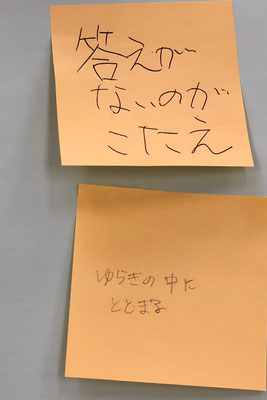 答えが
ないのが
こたえ
ゆらぎの中に
とどまる